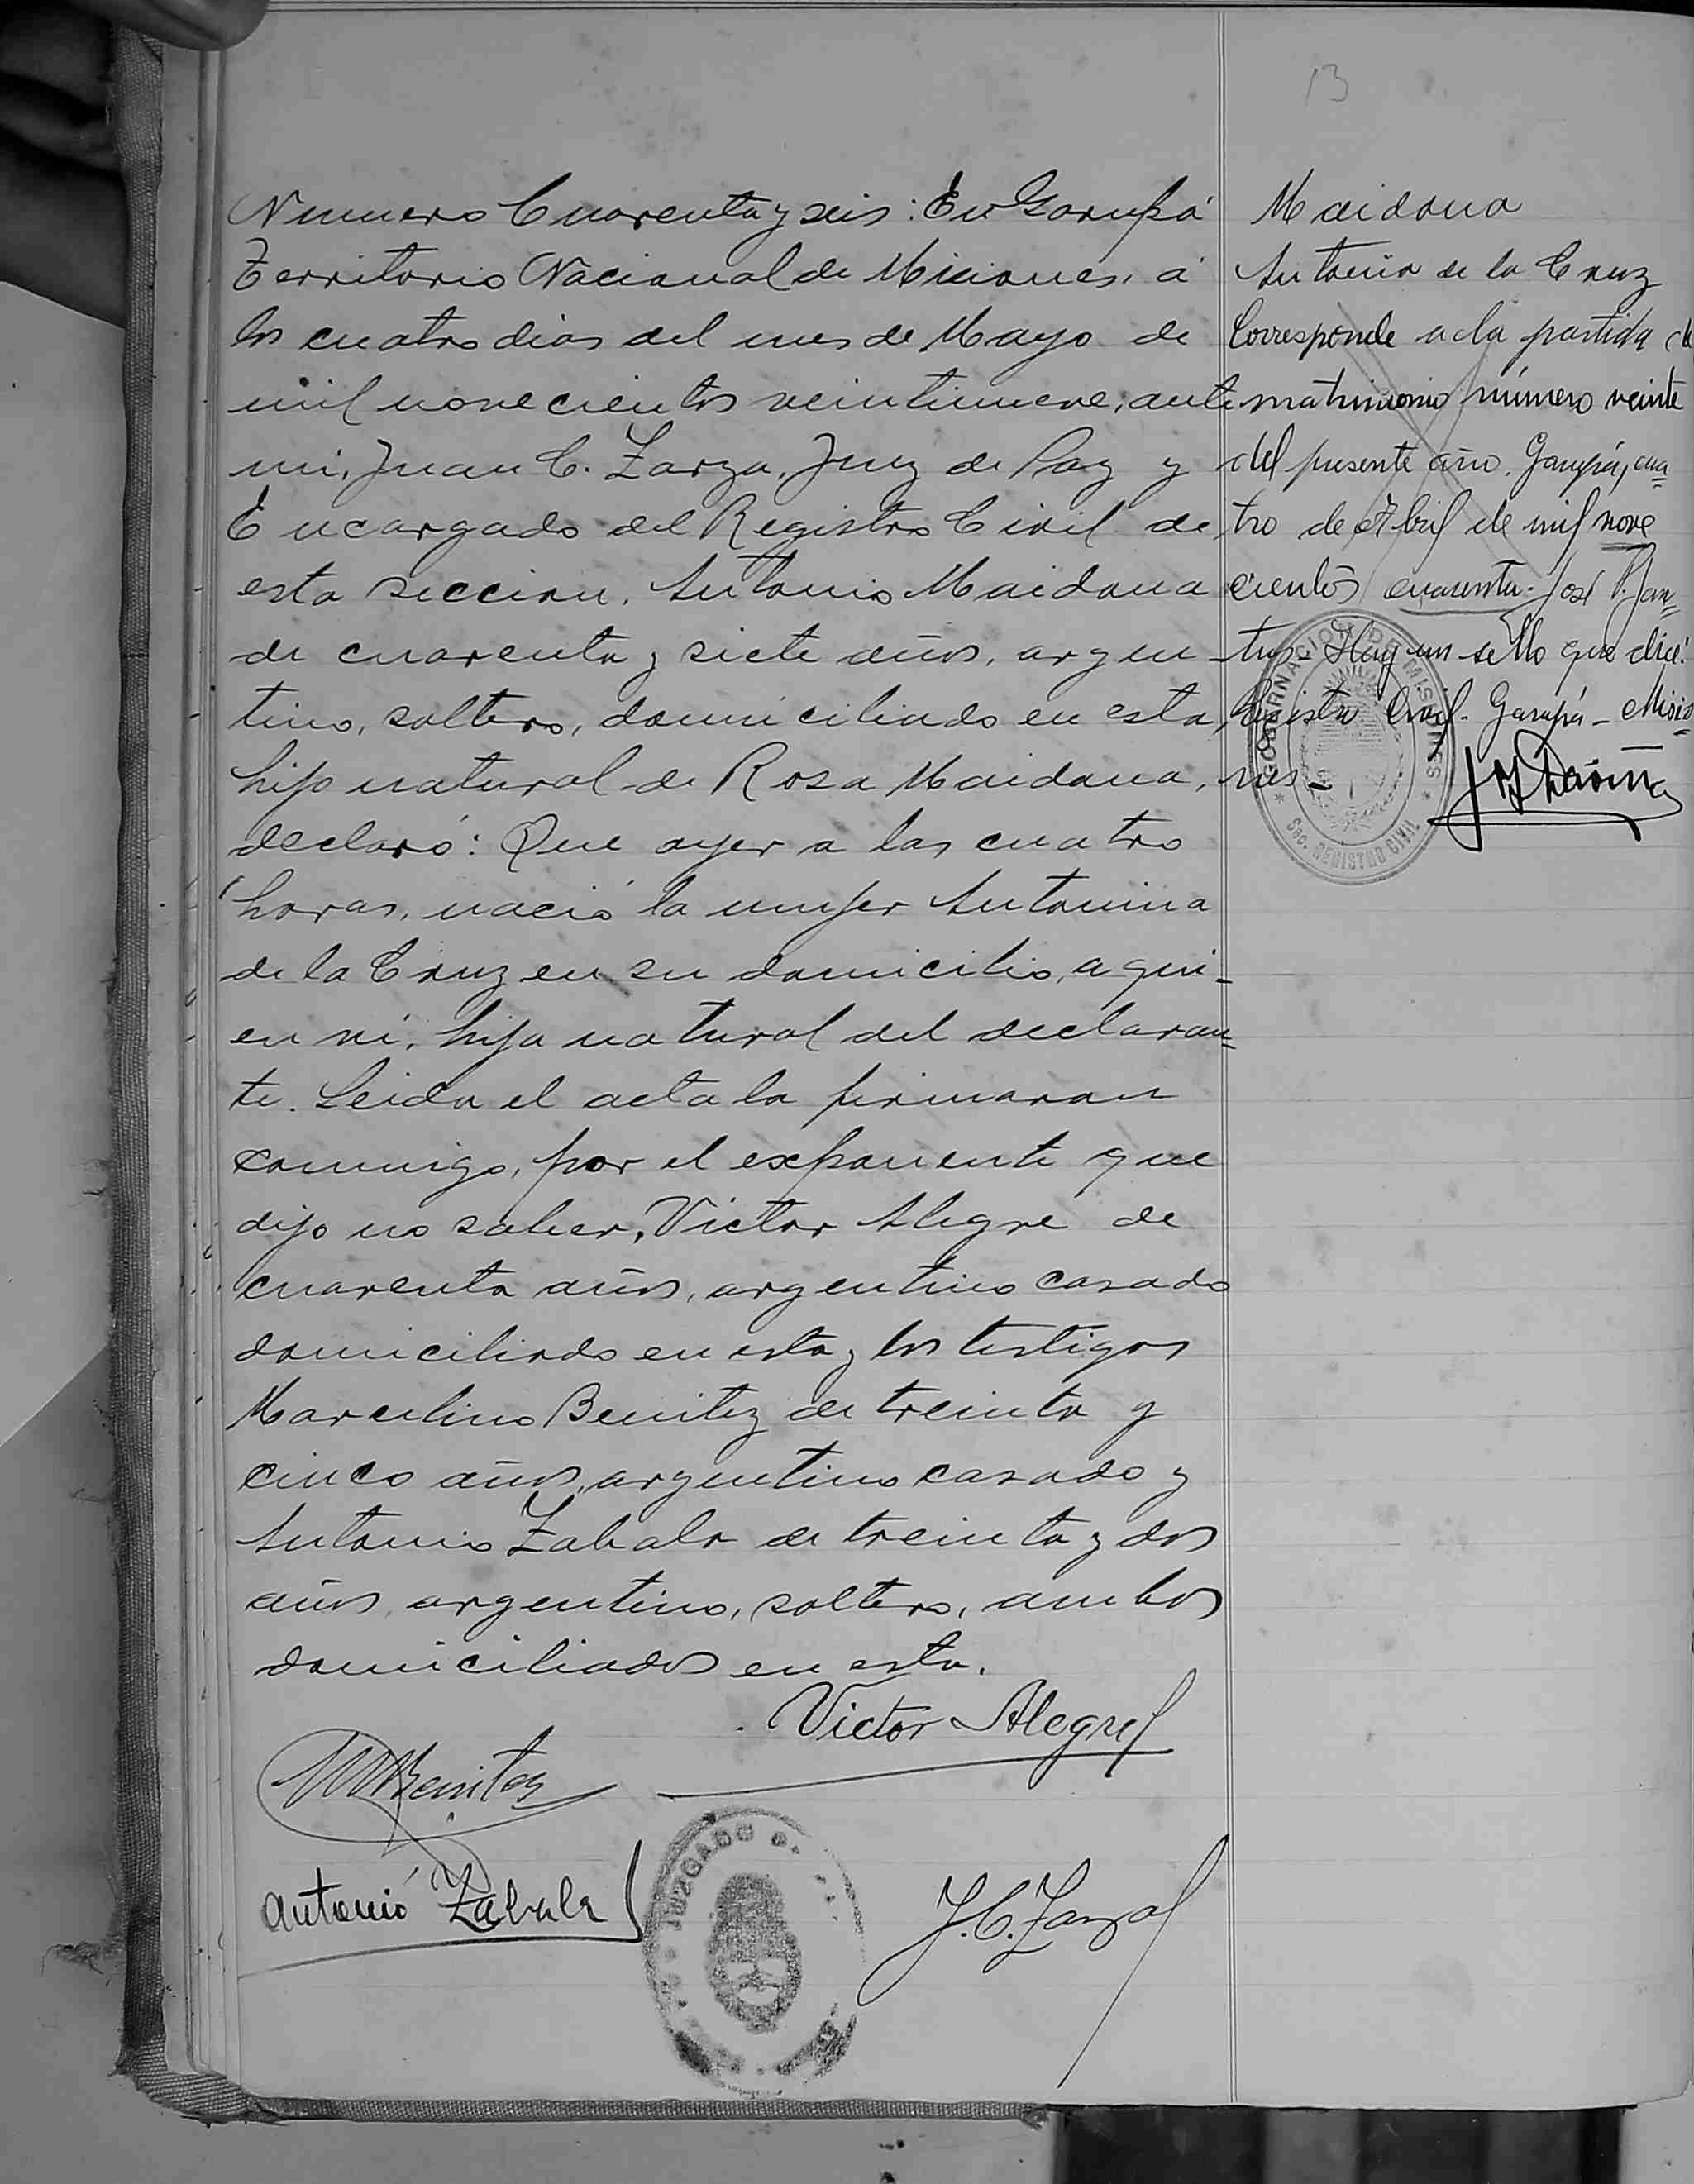 13
Numero Cuarenta y seis: En Garupá
Territorio Nacional de Misiones, á
los cuatro dias del mes de Mayo de
mil novecientos veintinueve, ante
mi, Juan C. Zarza, Juez de Paz y
Encargado del Registro Civil de
esta seccion. Antonio Maidana
de cuarenta y siete años, argen
tino, soltero, domiciliado en esta,
hijo natural de Rosa Maidana,
declaró: Que ayer a las cuatro
horas, nació la mujer Antonina
de la Cruz en su domicilio, a qui-
en vi, hija natural del declaran=
te. Leida el acta la firmaran
conmigo, por el exponente que
dijo no saber, Victor Alegre de
cuarenta años, argentino casado
domiciliado en esta y los testigos
Marcelino Benitez de treinta y
cinco años, argentino casado y
Antonio Zabala de treinta y dos
años, argentino, soltero, ambos
domiciliados en esta.
Victor Alegre
M Benitez
Antonio Zabala
J. C. Zarza
JUZGADO
Maidana
Antonia de la Cruz
Corresponde a la partida de
matrimonio número veinte
del presente año. Garupá, cua=
tro de Abril de mil nove
cientos cuarenta. José
Hay un sello que dice:
Registro Civil - Garupá - Misio=
nes -
GOBERNACION DE MISIONES
Sec. REGISTRO CIVIL